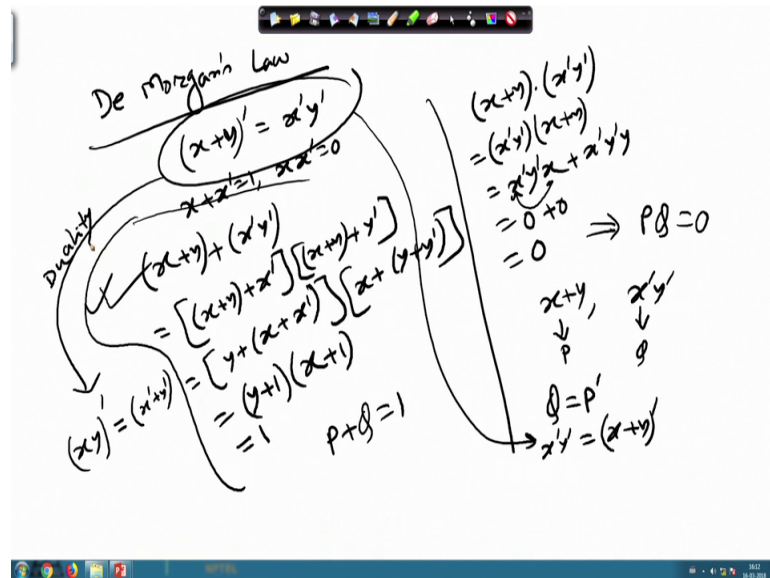 De Morgan's Law
(x+y)' = x'y'
x+x'=1, xx'=0
Duality
(x+y)+(x'y')
= [(x+y)+x'][(x+y)+y']
= [y+(x+x')][x+(y+y')]
= (y+1)(x+1)
= 1
P+Q=1
(xy)' = (x'+y')
(x+y)·(x'y')
= (x'y')(x+y)
= x'y'x + x'y'y
= 0+0
= 0
⇒ PQ=0
x+y, x'y'
↓ ↓
P Q
Q=P'
x'y' = (x+y)'
NPTEL
16:12
16-03-2018